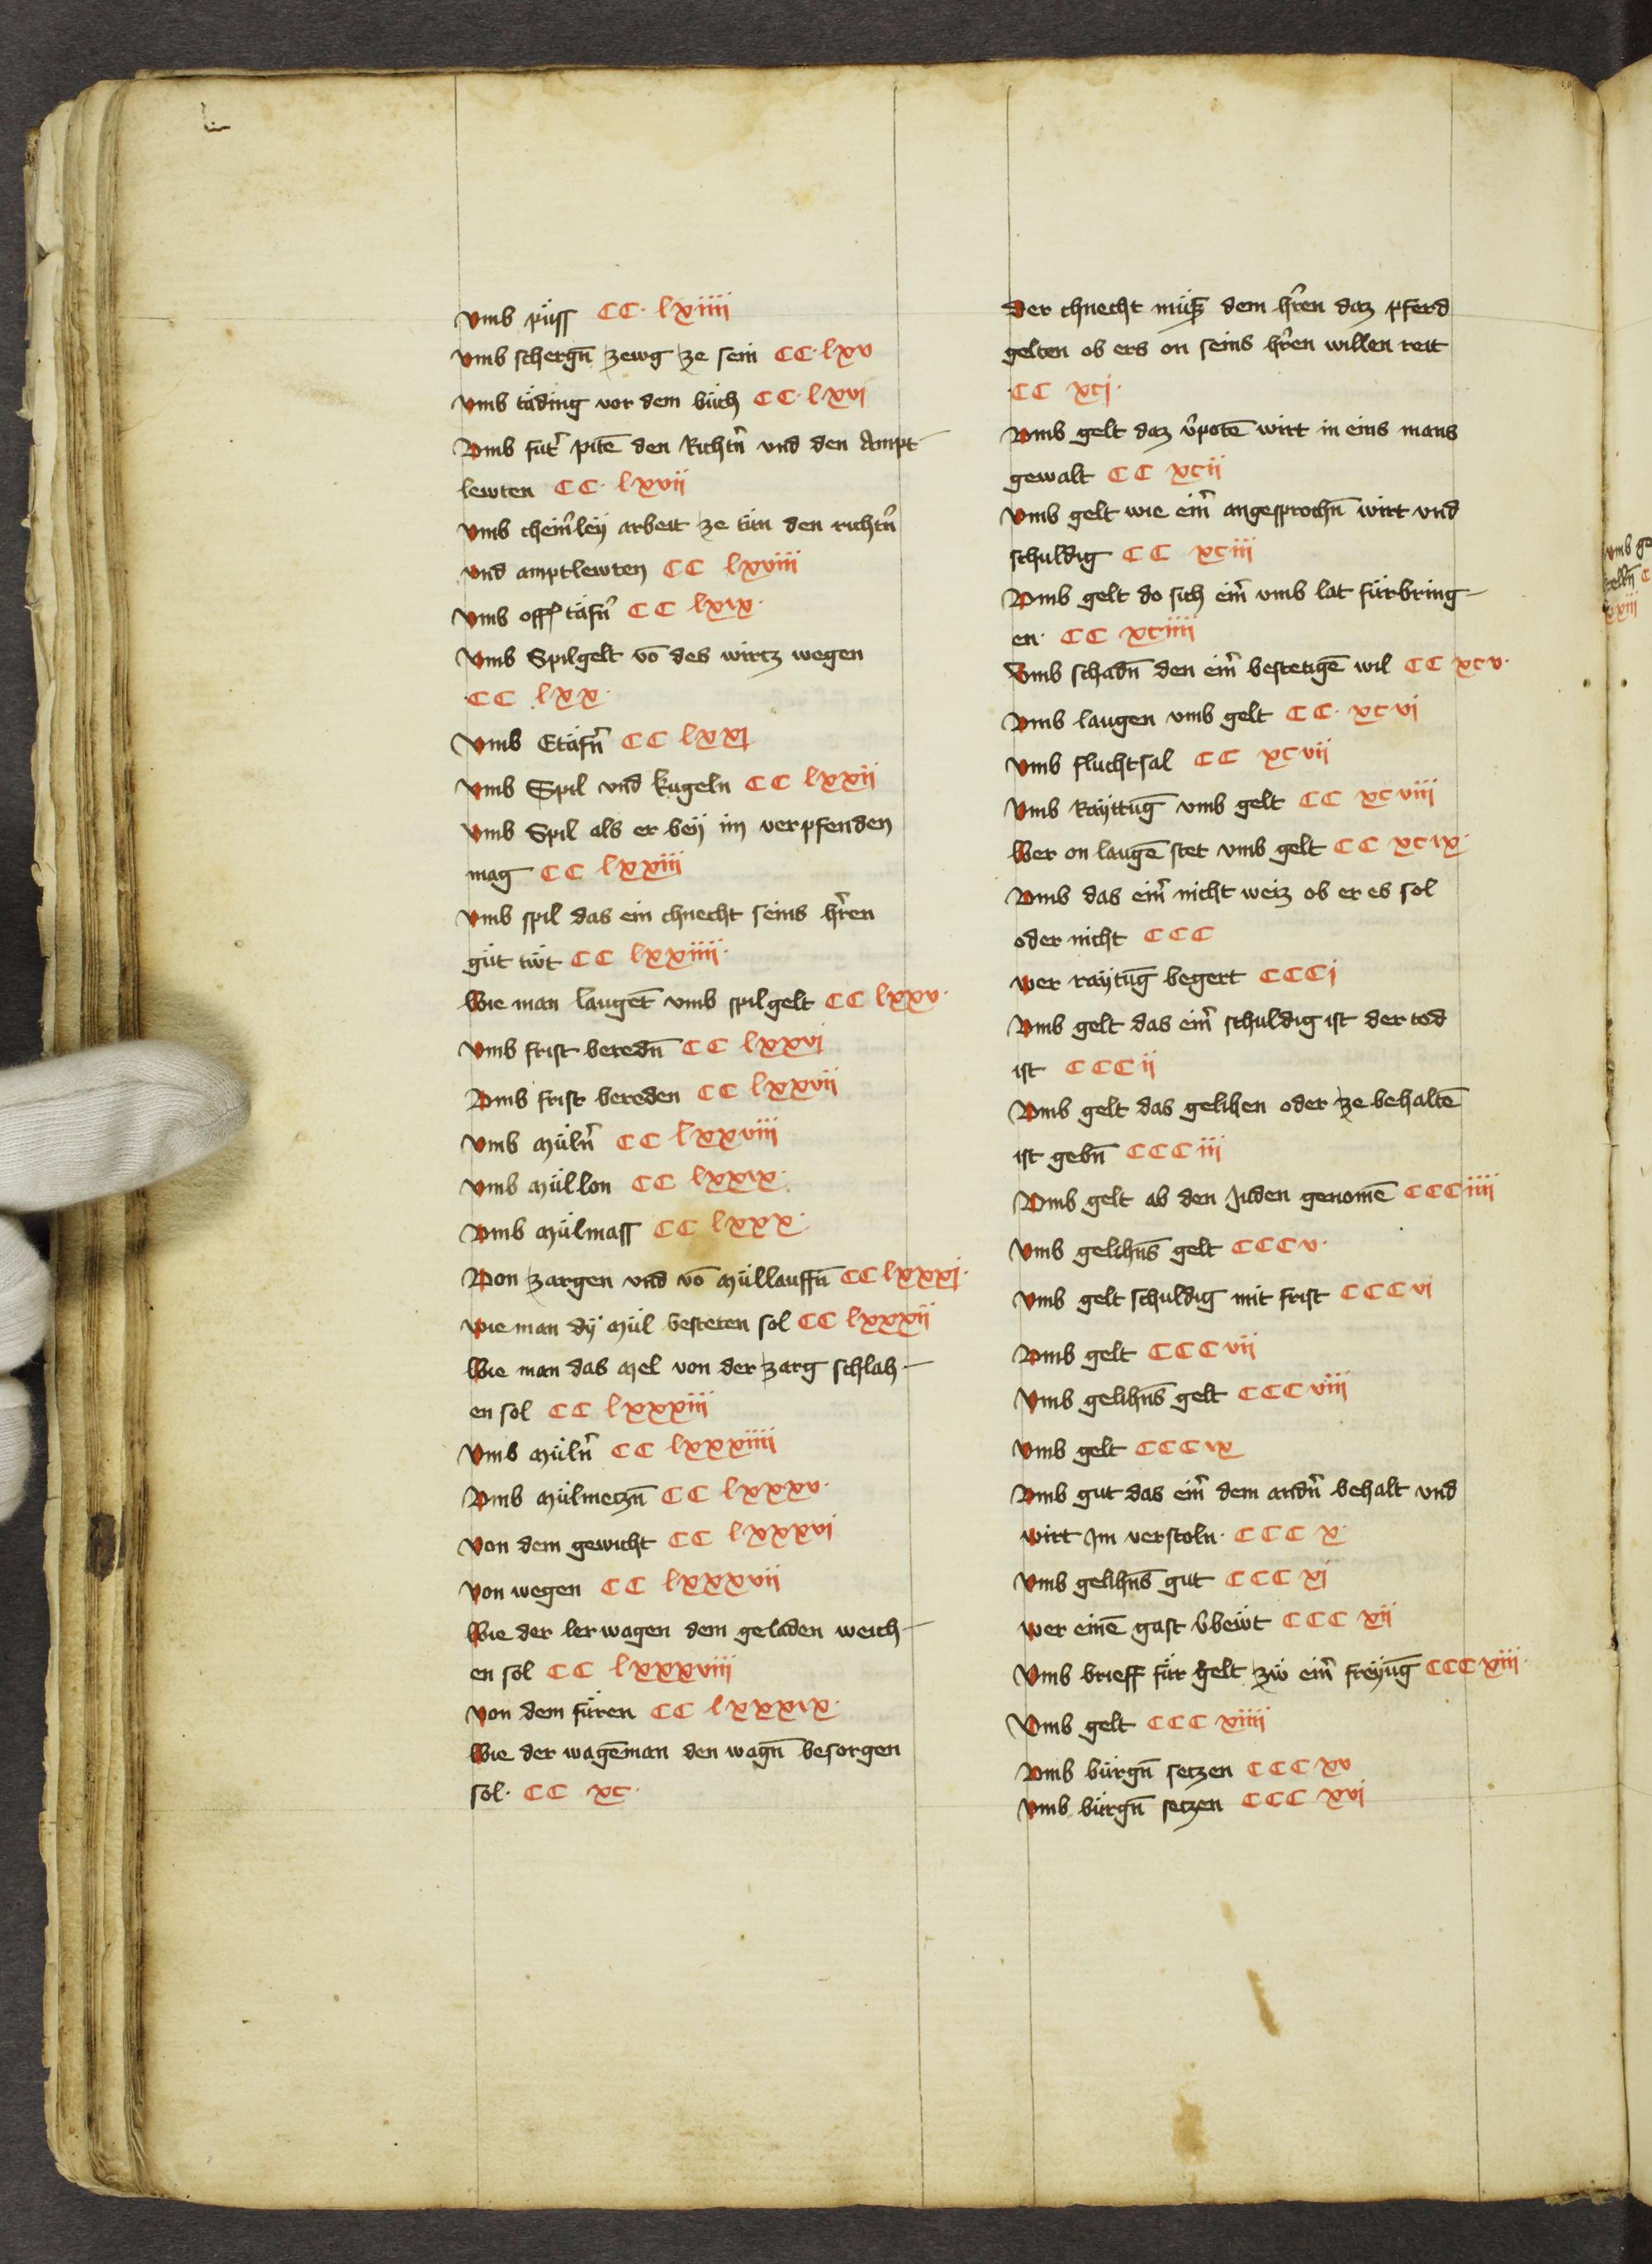 Vmb püss CC· lxiiii
Vmb schergn̄ zewg ze sein CC· lxv
Vmb täding vor dem büch CC· lxvi
Vmb fut̄ pitē den Richtn̄ vnd den Ampt
lewten CC· lxvii
Vmb cheinˀleÿ arbeit ze tün den richtn̄
vnd amptlewten CC lxviii
Vmb off täfn̄ CC lxix·
Vmb Spilgelt vō des wirtz wegen
CC lxx·
Vmb Etäfn̄ CC lxxi
Vmb Spil vnd kugeln CC lxxii
Vmb Spil als er beÿ im verpfenden
mag CC lxxiii
Vmb spil das ein chnecht seins hˀren
güt tüt CC lxxiiii·
Wie man laugēt vmb spilgelt CC lxxv·
Vmb frist beredn̄ CC lxxvi
Vmb frist bereden CC lxxvii
Vmb Müln̄ CC lxxviii
Vmb Müllon CC lxxix·
Vmb Mülmass CC lxxx·
Von zargen vnd vō Müllauffn̄ CC lxxxi·
Wie man dÿ Mül besteten sol CC lxxxii
Wie man das Mel von der zarg schlah
en sol CC lxxxiii
Vmb Müln̄ CC lxxxiiii
Vmb Mülmetzn̄ CC lxxxv·
Von dem gewicht CC lxxxvi
Von wegen CC lxxxvii
Wie der ler wagen dem geladen weich
en sol CC lxxxviii
Von dem füren CC lxxxix·
Wie der wagēman den wagn̄ besorgen
sol· CC xc·
Der chnecht müß dem hˀren daz pferd
gelten ob ers on seins hˀren willen reit
CC xci·
Vmb gelt daz vˀpotē wirt in eins mans
gewalt CC xcii
Vmb gelt wie einˀ angesprochn̄ wirt vnd
schuldig CC xciii
Vmb gelt do sich einˀ vmb lat fürbring
en· CC xciiii
Vmb schadn̄ den einˀ bestetigē wil CC xcv·
Vmb laugen vmb gelt CC· xcvi
Vmb fluchtsal CC xcvii
Vmb Raÿttūg vmb gelt CC xcviii
Wer on laugē stet vmb gelt CC xcix·
Vmb das einˀ nicht weiz ob er es sol
oder nicht CCC
Wer raÿtūg begert CCCi
Vmb gelt das einˀ schuldig ist der tod
ist CCCii
Vmb gelt das gelihen oder ze behaltē
ist gebn̄ CCCiii
Vmb gelt ab den Juden genomē CCCiiii
Vmb gelihn̄s gelt CCCv·
Vmb gelt schuldig mit frist CCCvi
Vmb gelt CCCvii
Vmb gelihn̄s gelt CCCviii
Vmb gelt CCCix
Vmb gut das einˀ dem andn̄ behalt vnd
wirt Im verstoln· CCC x·
Vmb gelihn̄s gut CCC xi
Wer einē gast vˀbewt CCC xii
Vmb brieff für gelt zü einˀ freÿūg CCC xiii·
Vmb gelt CCC xiiii
Vmb bürgn̄ setzen CCC xv
Vmb bürgn̄ setzen CCC xvi